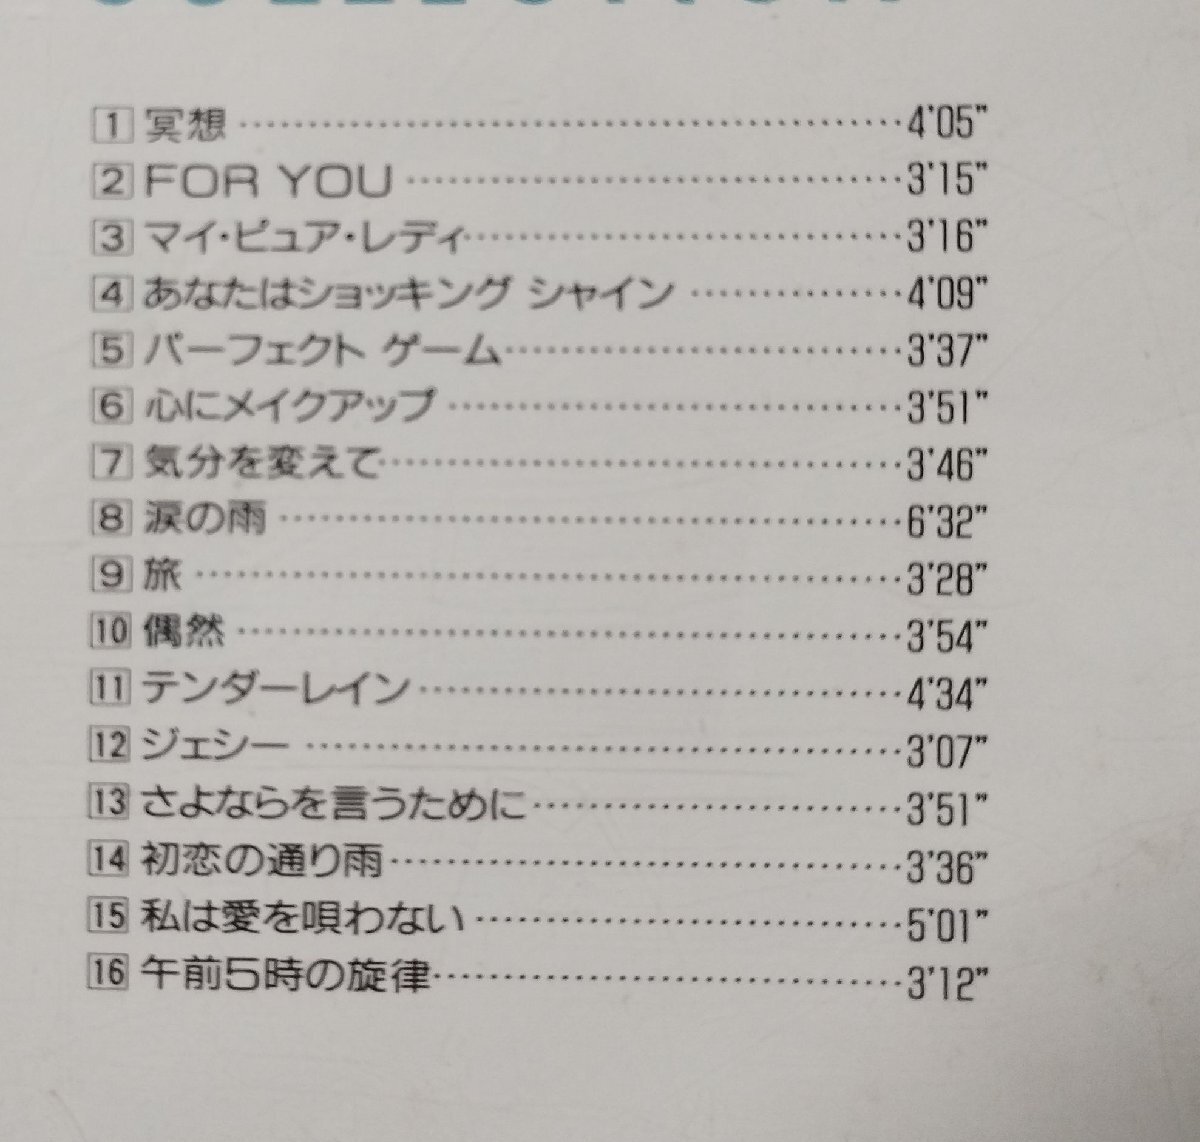 COLLECTION
1 冥想 4'05"
2 FOR YOU 3'15"
3 マイ・ピュア・レディ 3'16"
4 あなたはショッキング シャイン 4'09"
5 パーフェクト ゲーム 3'37"
6 心にメイクアップ 3'51"
7 気分を変えて 3'46"
8 涙の雨 6'32"
9 旅 3'28"
10 偶然 3'54"
11 テンダーレイン 4'34"
12 ジェシー 3'07"
13 さよならを言うために 3'51"
14 初恋の通り雨 3'36"
15 私は愛を唄わない 5'01"
16 午前5時の旋律 3'12"